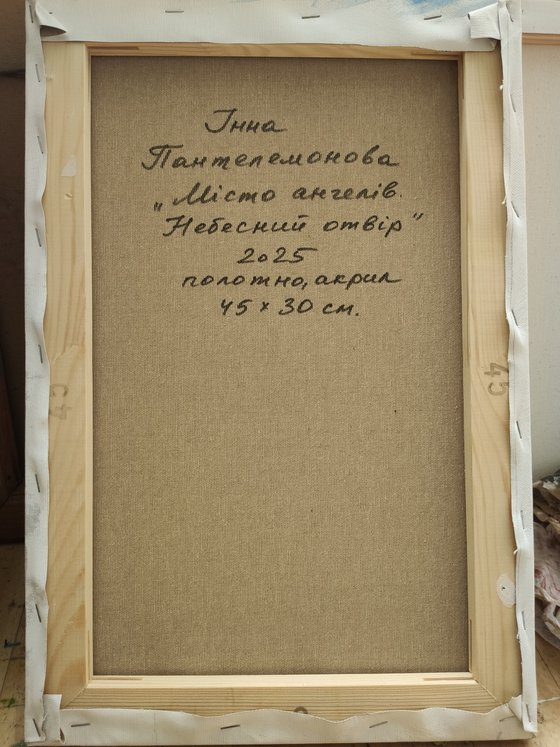 Інна
Пантелемонова
„Місто ангелів.
Небесний отвір"
2025
полотно, акрил
45 × 30 см.
45